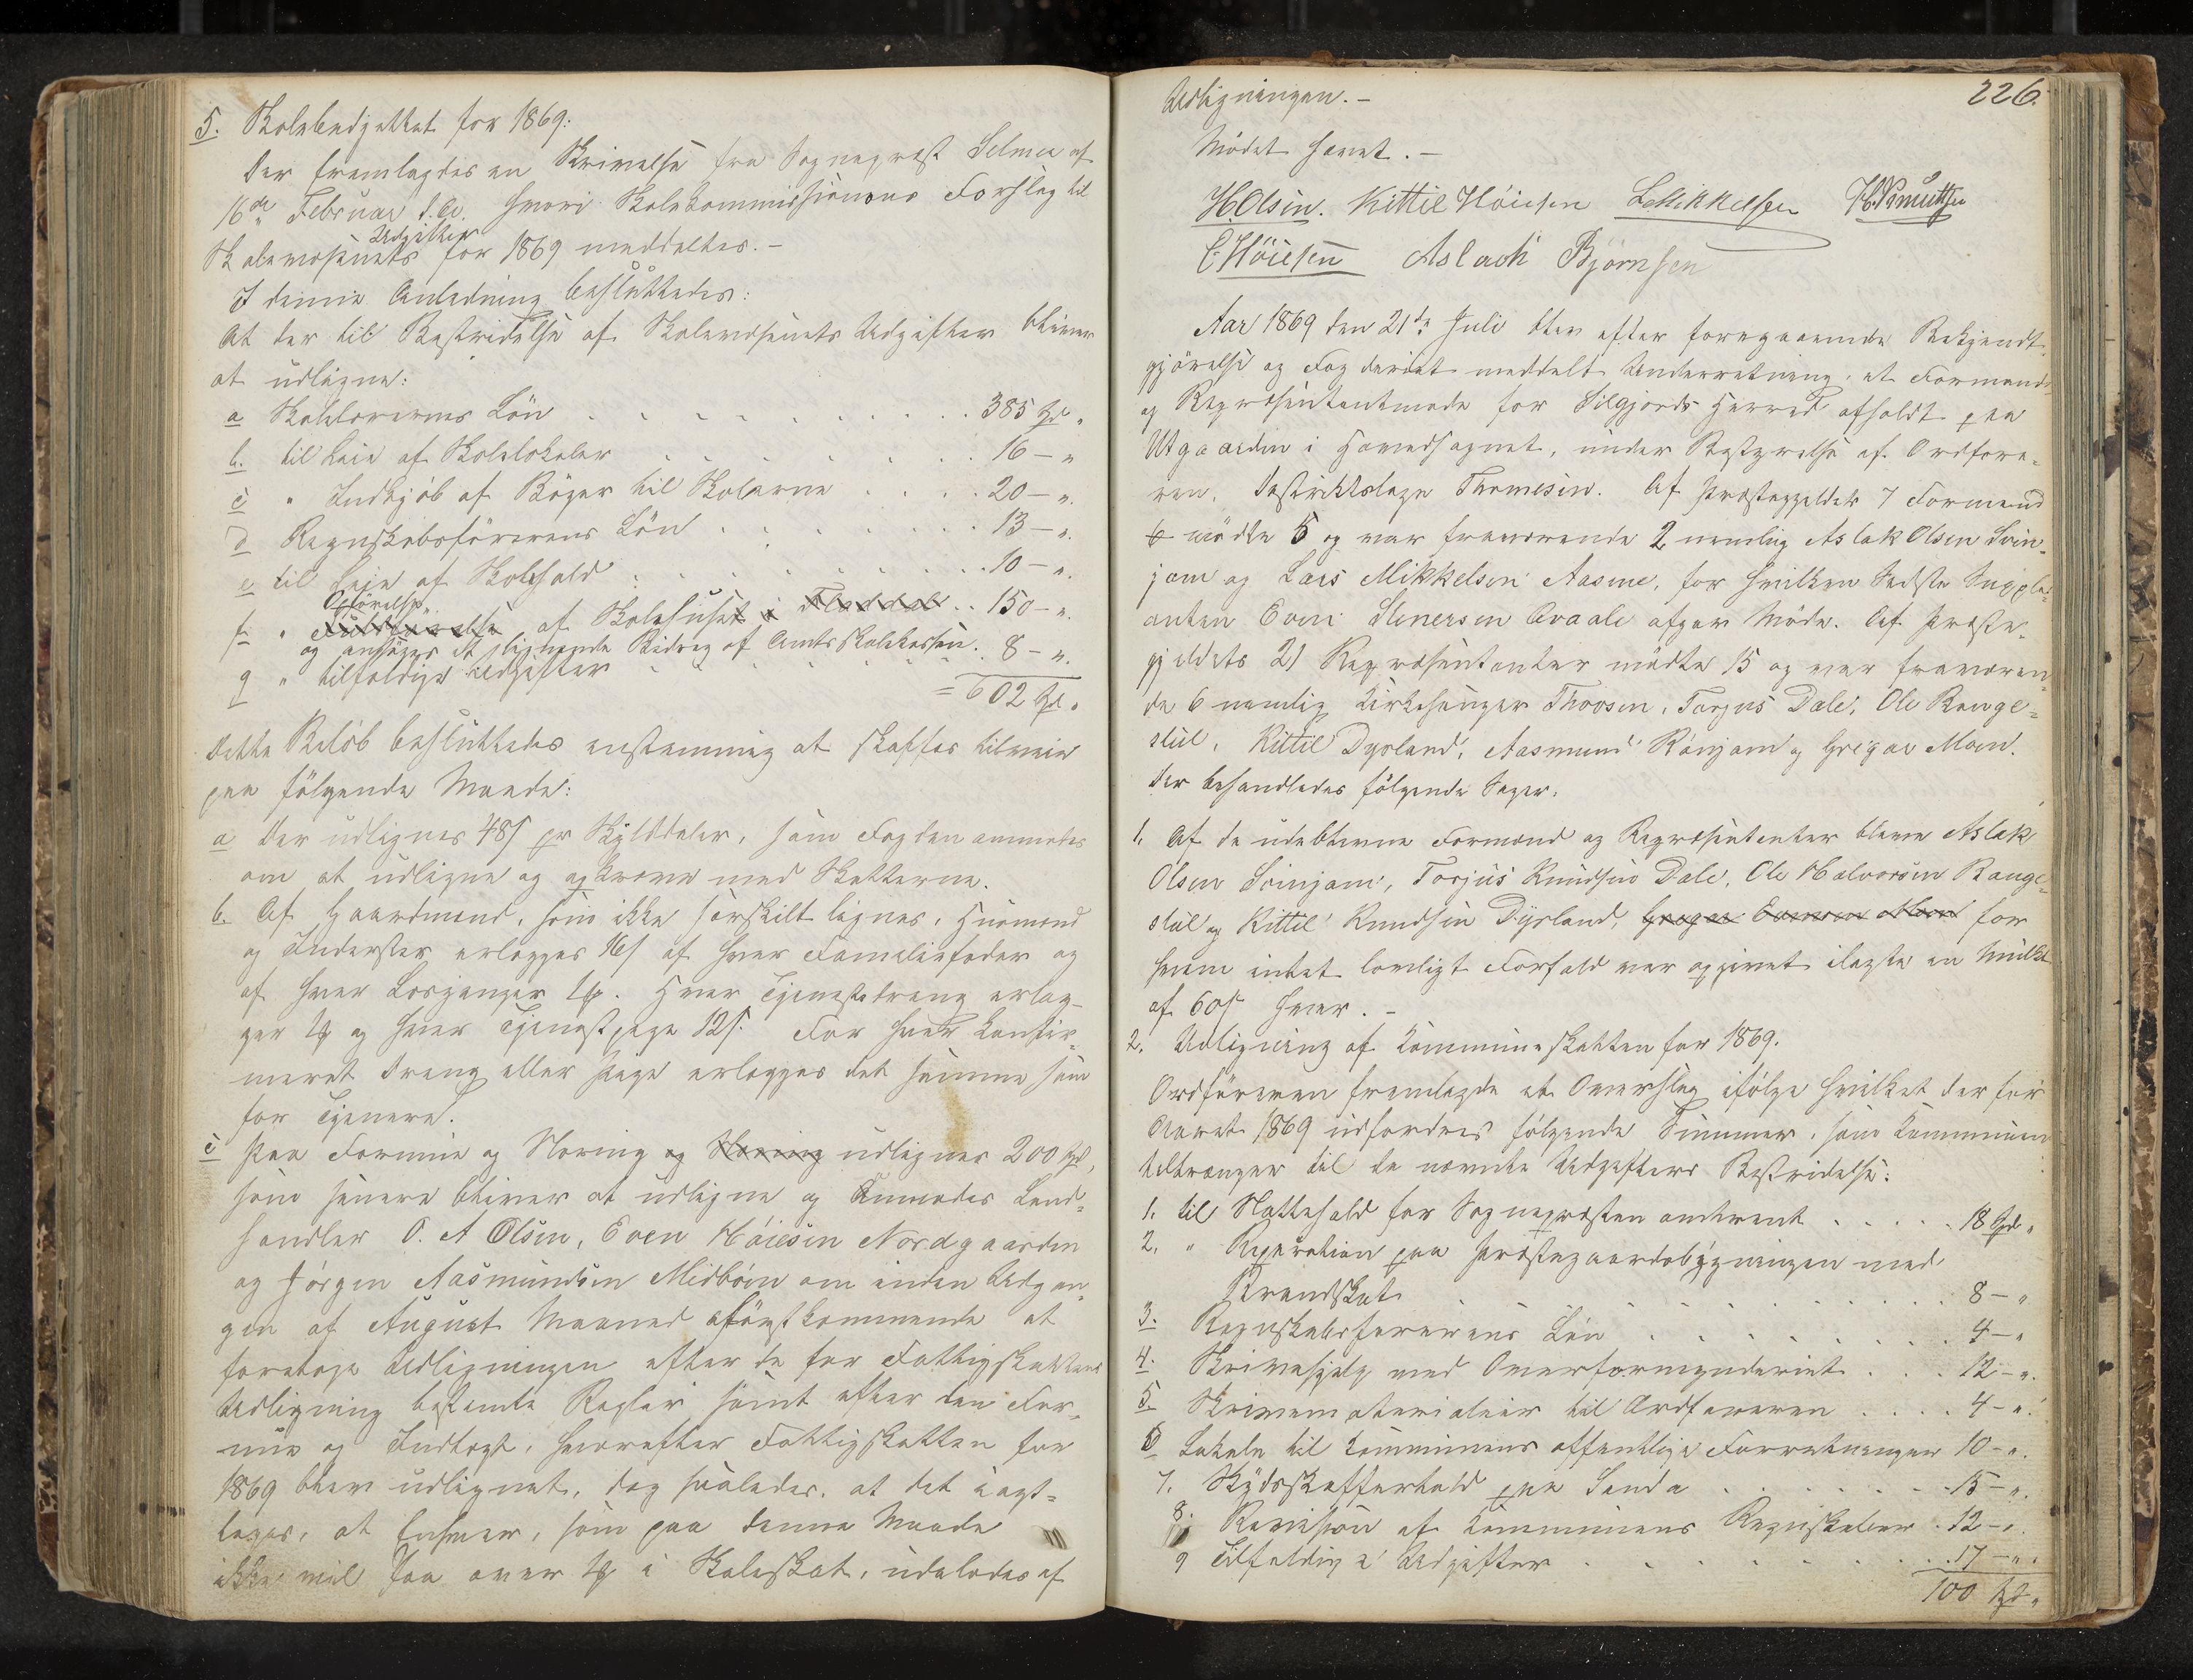 5. Skolebudgettet for 1869:
Der fremlagdes en Skrivelse fra Sogneprest Selmer af
16de Februar d. A. hvori Skolekommissionens Forslag til
Udgifter
Skolevæsenets for 1869 meddeltes. –
I denne Anledning besluttedes:
At der til Bestridelse af Skolevæsenets Udgifter bliver
at udligne:
a Skolelærernes Løn . . . . . . . . . 385 Spd "
b. til Leie af Skolelokaler . . . . . . . . 16 – "
c " Indkjøb af Bøger til Skolerne . . . . 20 – ".
d Regnskabsførerens Løn . . . . . . . 13 – ".
e til Leie af Skolehold . . . . . . . . . 10 – ".
Opførelse
f. " af Skolehuset i Fladdal . . 150 – ".
og ansøges et lignende Bidrag af Amtsskolekassen.
g " tilfældige Udgifter . . . . . . . 8 – ".
= 602 Spd. "
Dette Beløb besluttedes enstemmig at skaffes tilveie
paa følgende Maade:
a Der udlignes 48 s pr Skylddaler, som Fogden anmodes
om at udligne og opkræve med Skatterne.
b. Af Gaardmænd, som ikke særskilt lignes, Husmænd
og Inderster erlægges 16 s af hver Familiefader og
af hver Losgjænger 1 . Hver Tjenestedreng erlæg-
ger 1 og hver Tjenestpige 12 s. For hver konfir-
meret Dreng eller Pige erlægges det samme som
for Tjenere.
c Paa Formue og Næring og Næring udlignes 200 Spd,
som senere bliver at udligne og Anmodes Land-
handler O. A Olsen, Even Høiesen Nordgaarden
og Jørgen Aasmundsen Midbøen om inden Udgan-
gen af August Maaned førstkommende at
foretage Udligningen efter de for Fattigskattens
Udligning bestemte Regler samt efter den For-
mue og Indtægt, hvorefter Fattigskatten for
1869 blev udlignet, dog saaledes, at det iagt-
tages, at Enhver, som paa denne Maade
ikke vil faa over 1 i Skoleskat, udelades af
226.
Udligningen. –
Mødet hævet. –
H. Olsen. Kittil Høiesen L. Mikkelsen H. Knuttsen
E. Høiesen Aslach Bjørnsen
Aar 1869 den 21de Juli blev efter foregaaende Bekjendt-
gjørelse og Fogderiet meddelt Underretning, et Formands
og Repræsentantmøde for Siljords Herred afholdt paa
Utgaarden i Hovedsognet, under Bestyrelse af Ordføre-
ren, Distriktslæge Thomesen. Af Præstegjeldets 7 Formænd
mødte 5 og var fraværende 2 nemlig Aslak Olsen Svin-
jom og Lars Mikkelsen Aasme, for hvilken sidste Supple-
anten Even Stenersen Qvaale afgav Møde. Af Præste-
gjeldets 21 Repræsentanter mødte 15 og var fraværen-
de 6 nemlig Kirkesanger Thoresen, Torjus Dale, Ole Bange-
stul, Kittil Dyrland, Aasmund Rønjom og Gregar Moen.
Der behandledes følgende Sager.
1. Af de udeblevne Formænd og Repræsentanter bleve Aslak
Olsen Svinjom, Torjus Knudsen Dale, Ole Halvorsen Bange-
stul og Kittil Knudsen Dyrland, Gregar Evensen Moen for
hvem intet lovligt Forfald var opgivet ilagte en Mulkt
af 60 s hver. –
2. Udligning af Kommuneskatten for 1869.
Ordføreren fremlagde et Overslag ifølge hvilket der for
Aaret 1869 udfordres følgende Summer, som Kommunen
tiltrænger til de nævnte Udgifters Bestridelse:
1. til Nattehold for Sognepræsten omtrent . . . . . 18 Spd "
2. " Reparation paa Præstegaardsbygningen med
Brandskat . . . . . . . . . . 8 – "
3. Regnskabsførerens Løn . . . . . . . . 4 – "
4. Skrivehjelp med Overformynderiet . . . 12 – ".
5. Skrivematerialier til Ordføreren . . . . 4 – ".
6 Lokale til Kommunens offentlige Forretninger 10 – ".
7. Skydsskafferhold paa Sanda . . . . . . . 15 – ".
8. Revision af Kommunens Regnskaber . 12 – ".
9 Tilfældige Udgifter . . . . . . . . . 17 – ".
100 Spd "